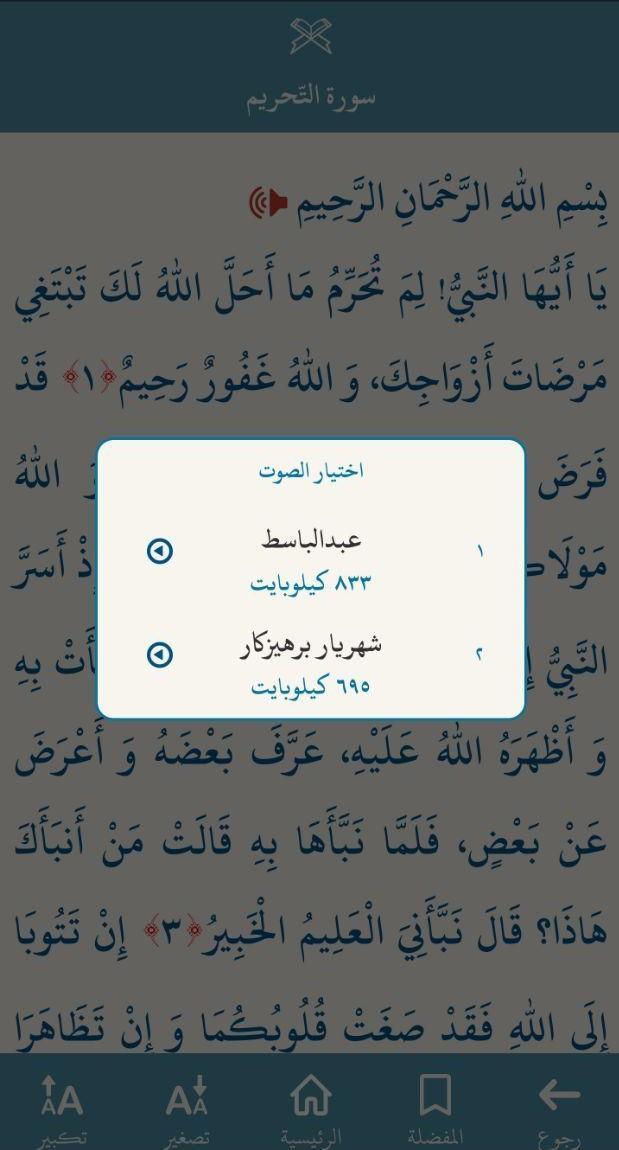 سورة التّحريم
بِسْمِ اللهِ الرَّحْمَانِ الرَّحِيمِ
يَا أَيُّهَا النَّبِيُّ! لِمَ تُحَرِّمُ مَا أَحَلَّ اللهُ لَكَ تَبْتَغِي
مَرْضَاتَ أَزْوَاجِكَ، وَ اللهُ غَفُورٌ رَحِيمٌ ﴿١﴾ قَدْ
فَرَضَ اللهُ
أَسَرَّ
النَّبِيُّ بِهِ
اختيار الصوت
١ عبدالباسط
٨٣٣ كيلوبايت
٢ شهريار برهيزكار
٦٩٥ كيلوبايت
وَ أَظْهَرَهُ اللهُ عَلَيْهِ، عَرَّفَ بَعْضَهُ وَ أَعْرَضَ
عَنْ بَعْضٍ، فَلَمَّا نَبَّأَهَا بِهِ قَالَتْ مَنْ أَنبَأَكَ
هَاذَا؟ قَالَ نَبَّأَنِيَ الْعَلِيمُ الْخَبِيرُ ﴿٣﴾ إِنْ تَتُوبَا
إِلَى اللهِ فَقَدْ صَغَتْ قُلُوبُكُمَا وَ إِنْ تَظَاهَرَا
رجوع المفضلة الرئيسية تصغير تكبير